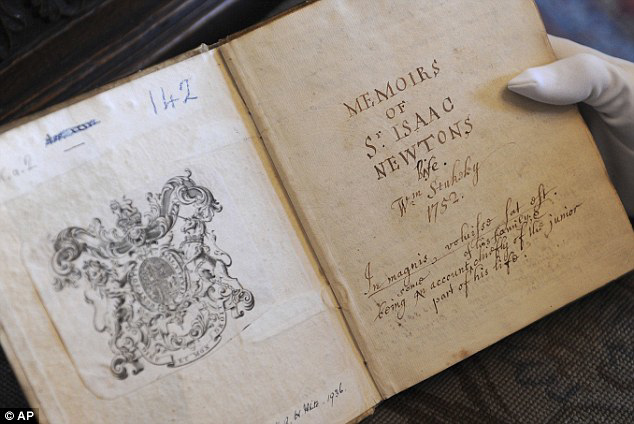 142
MEMOIRS
OF
Sr. ISAAC
NEWTONS
life.
Wm Stukely
1752.
In magnis voluisse sat est.
some of his family &
being an account chiefly of the junior
part of his life.
1936.
© AP